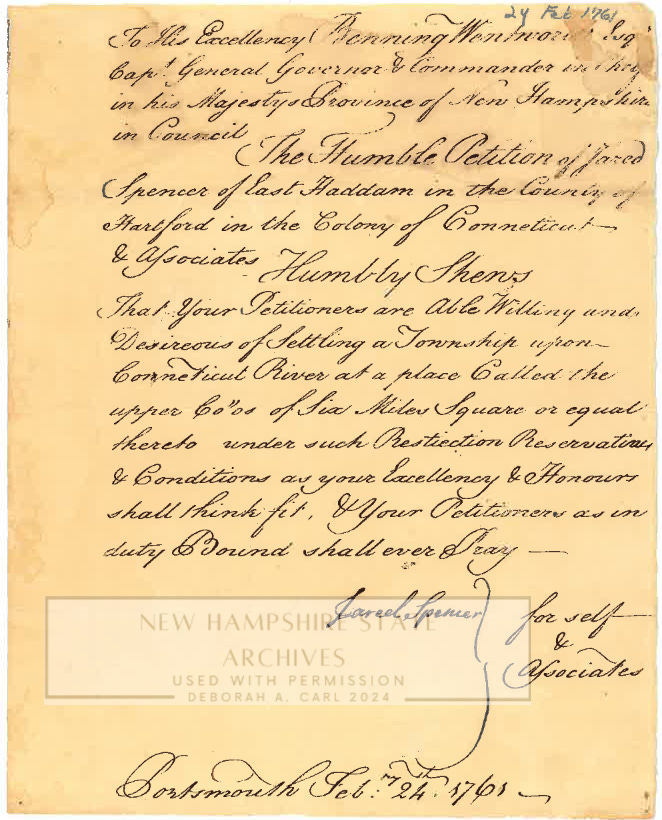 24 Feb 1761
To His Excellency Benning Wentworth Esqr
Capt General Governor & Commander in Cheif
in his Majestys Province of New Hampshire
in Council
The Humble Petition of Jared
Spencer of East Haddam in the County of
Hartford in the Colony of Conneticut
& Associates Humbly Shews
That Your Petitioners are Able Willing and
Desireous of Settling a Township upon
Connecticut River at a place Called the
upper Co"os of Six Miles Square or equal
thereto under such Restiection Reservations
& Conditions as your Excellency & Honours
shall think fit, & Your Petitioners as in
duty Bound shall ever Pray —
Jared Spencer for self
&
Associates
NEW HAMPSHIRE STATE
ARCHIVES
USED WITH PERMISSION
DEBORAH A. CARL 2024
Portsmouth Feb:ry 24th. 1761 —